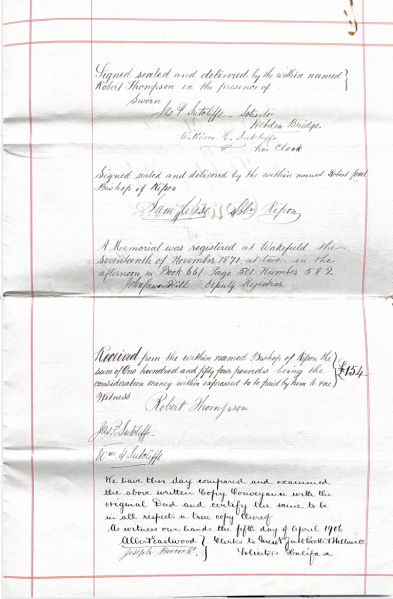 Signed sealed and delivered by the within named
Robert Thompson in the presence of
Sworn
Jas P Sutcliffe Solicitor
Hebden Bridge
William Sutcliffe
his Clerk
Signed sealed and delivered by the within named Robert
Bishop of Ripon
Ripon
A Memorial was registered at Wakefield the
seventeenth of November 1871 at two in the
afternoon in Book 661 Page 501 Number 582
Deputy Registrar
Received from the within named Bishop of Ripon the
sum of One hundred and fifty four pounds being the £154
consideration money within expressed to be paid by him to me
Witness
Robert Thompson
Jas. P. Sutcliffe
Wm Sutcliffe
We have this day compared and examined
the above written Copy Conveyance with the
original Deed and certify the same to be
in all respects a true copy thereof
As witness our hands the fifth day of April 1906
Albert Eastwood Clerks to
Joseph Solicitors Halifax